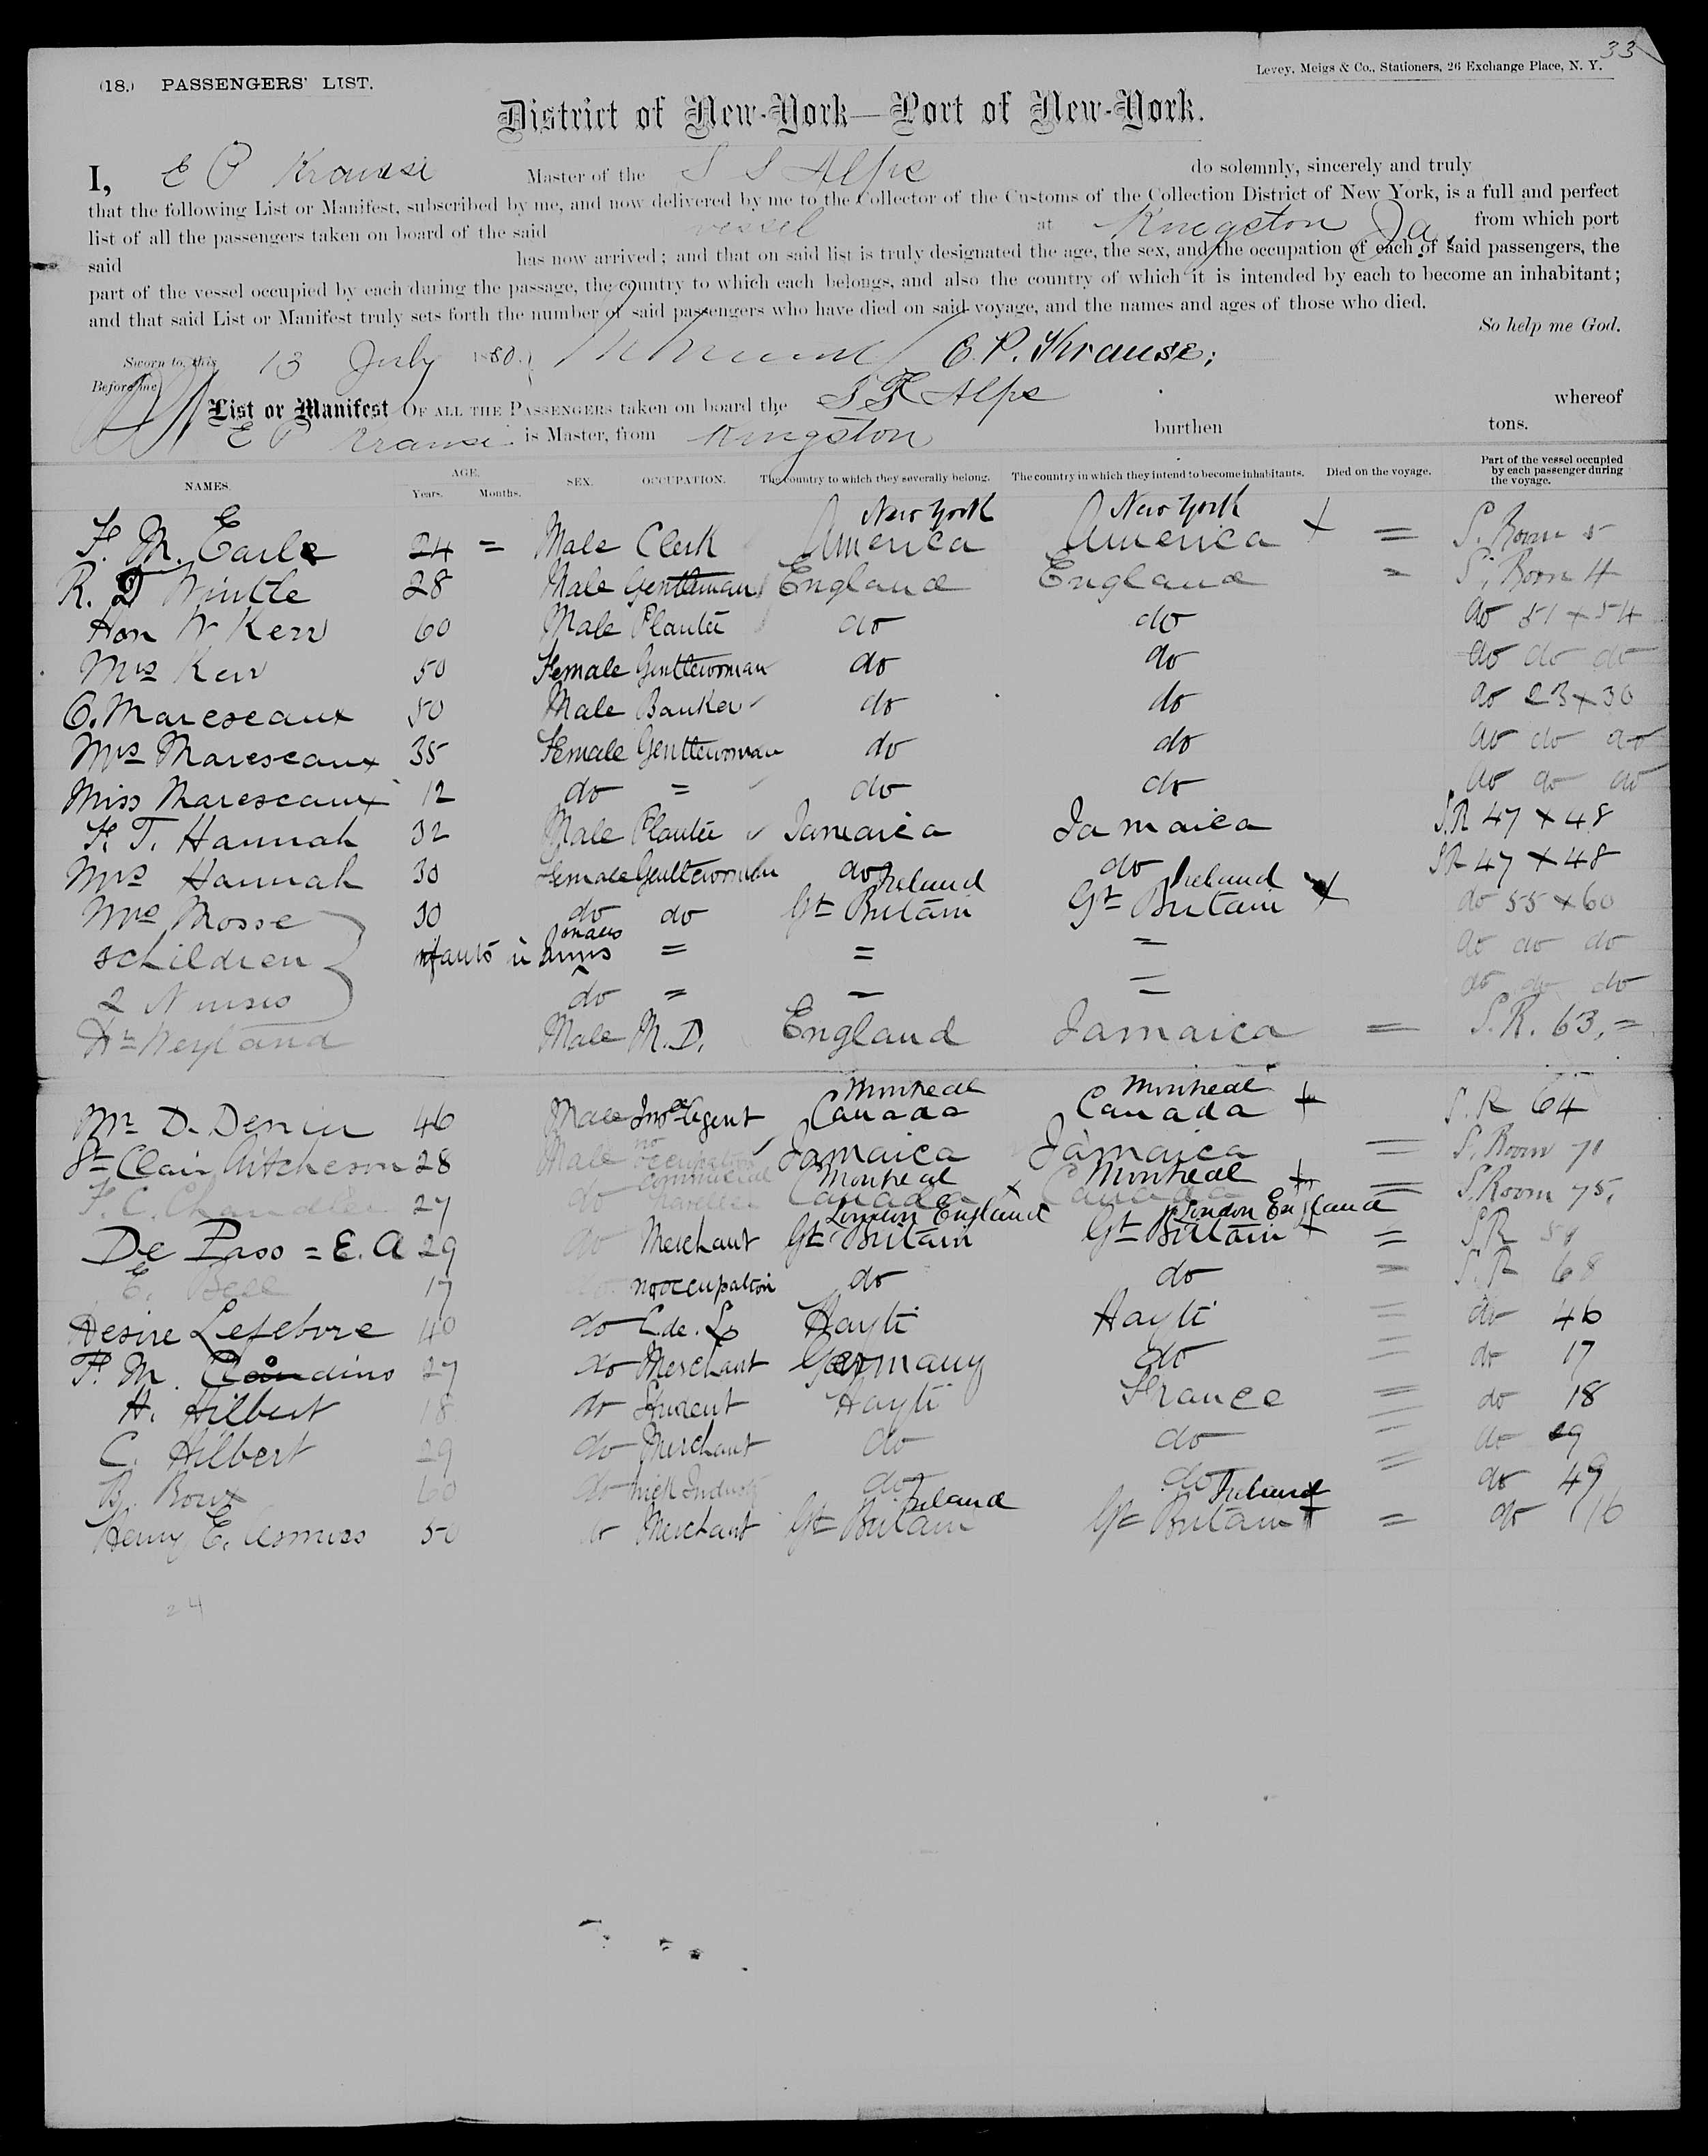 33
(18.) PASSENGERS' LIST.
Levey, Meigs & Co., Stationers, 26 Exchange Place, N. Y.
District of New-York—Port of New-York.
I, E P Krause Master of the S S Alps do solemnly, sincerely and truly
that the following List or Manifest, subscribed by me, and now delivered by me to the Collector of the Customs of the Collection District of New York, is a full and perfect
list of all the passengers taken on board of the said vessel at Kingston Ja, from which port
said has now arrived; and that on said list is truly designated the age, the sex, and the occupation of each of said passengers, the
part of the vessel occupied by each during the passage, the country to which each belongs, and also the country of which it is intended by each to become an inhabitant;
and that said List or Manifest truly sets forth the number of said passengers who have died on said voyage, and the names and ages of those who died.
So help me God.
Sworn to, this 13 July 1880. E. P. Krause;
Before me
List or Manifest OF ALL THE PASSENGERS taken on board the SS Alps whereof
E P Krause is Master, from Kingston burthen tons.
NAMES. AGE. Years. Months. SEX. OCCUPATION. The country to which they severally belong. The country in which they intend to become inhabitants. Died on the voyage. Part of the vessel occupied by each passenger during the voyage.
New York New York
F. M. Earle 24 = Male Clerk America America + = S. Room 5
R. D Wintle 28 Male Gentleman England England = S. Room 4
Hon W Kerr 60 Male Planter do do do 51 + 54
Mrs Kerr 50 Female Gentlewoman do do do do do
C. Marescaux 50 Male Banker do do do 23 + 30
Mrs Marescaux 35 Female Gentlewoman do do do do do
Miss Marescaux 12 do = do do do do do
F. T. Hannah 32 Male Planter Jamaica Jamaica S.R 47 + 48
Mrs Hannah 30 Female Gentlewoman do do SR 47 + 48
Ireland Ireland
Mrs Mosse 30 do do Gt Britain Gt Britain + do 55 + 60
3 children infants in arms = = = do do do
2 Nurses do = = = do do do
Dr Neyland Male M.D. England Jamaica = S.R. 63. =
Montreal Montreal
Mr D. Denin 46 Male Inse Agent Canada Canada + S.R 64
St Clair Aitcheson 28 Male no occupation Jamaica Jamaica = S. Room 71
Montreal Montreal
F. C. Chandler 27 do Commercial Traveller Canada + Canada + = S. Room 75.
London England London England
De Pass = E. A 29 do Merchant Gt Britain Gt Britain + = S.R
E. Bell 17 do no occupation do do = S.R 68
Desire Lefebvre 40 do C de. L Hayti Hayti = do 46
F. M. 27 do Merchant Germany do = do 17
H. Hilbert 18 do Student Hayti France = do 18
C. Hilbert 29 do Merchant do do = do 29
B. Roux 60 do do do = do 49
Ireland Ireland
Henry E. 50 do Merchant Gt Britain Gt Britain + = do 16
24